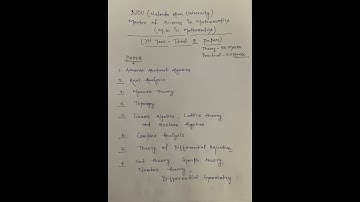 NOU (Nalanda Open University)
Master of Science in Mathematics
(M.Sc in Mathematics)
(1st Year - Total 8 papers)
Theory - 80 Marks
Practical - 20 Marks
PAPER
1. Advance Abstract Algebra
2. Real Analysis
3. Measure Theory
4. Topology
5. Linear Algebra, Lattice theory
and Boolean Algebra
6. Complex Analysis
7. Theory of Differential Equation
8. Set theory, Graph theory,
Number theory,
Differential Geometry